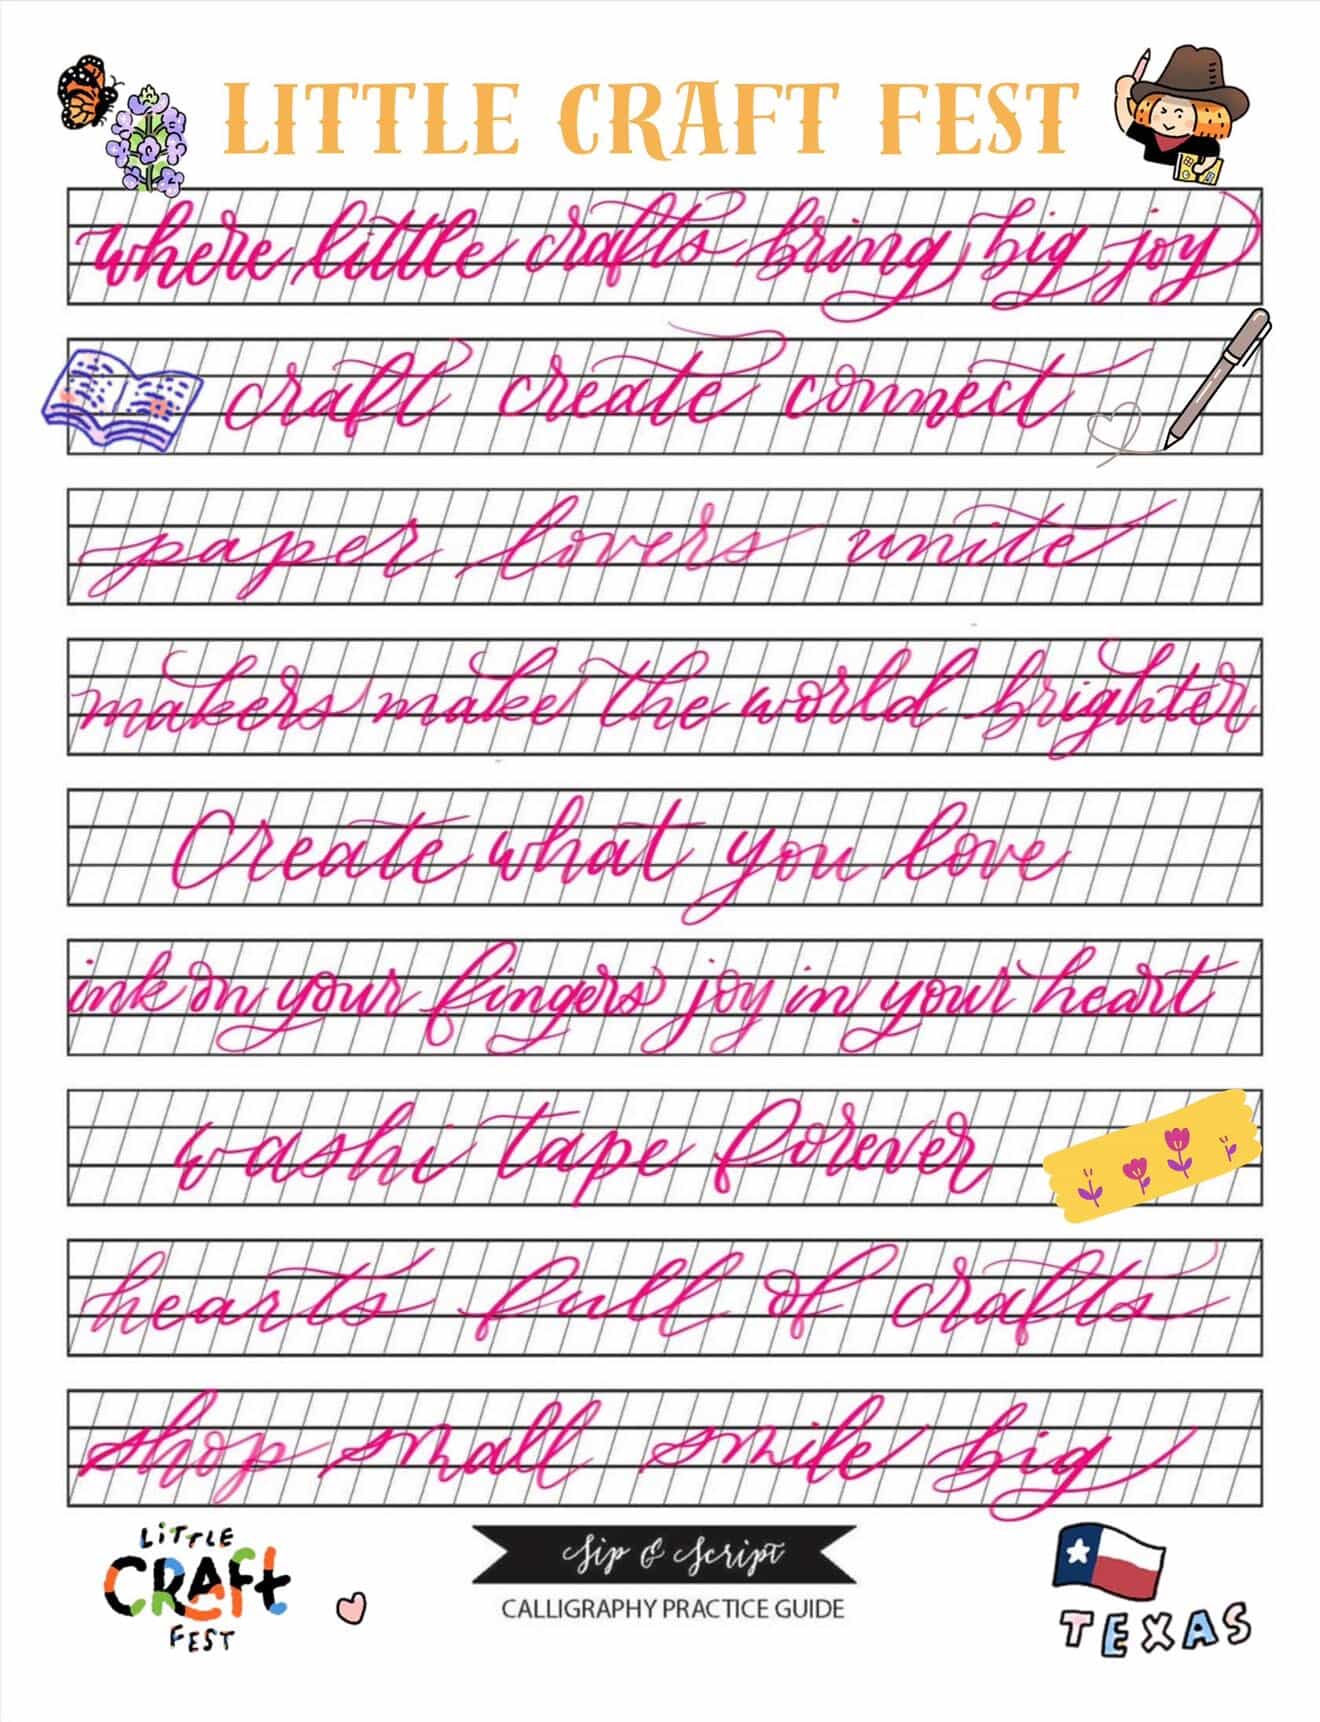 LITTLE CRAFT FEST
where little crafts bring big joy
craft create connect
paper lovers unite
makers make the world brighter
Create what you love
ink on your fingers joy in your heart
washi tape forever
hearts full of crafts
shop small smile big
LiTTLE
CRAFt
FEST
Sip & Script
CALLIGRAPHY PRACTICE GUIDE
TEXAS